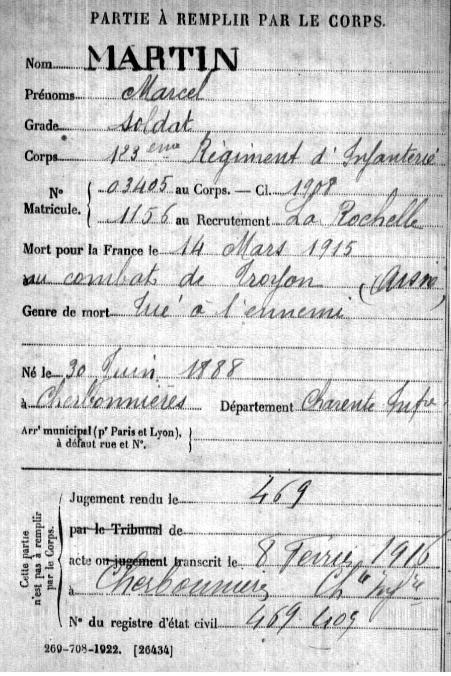 PARTIE À REMPLIR PAR LE CORPS.
Nom MARTIN
Prénoms Marcel
Grade soldat
Corps 123ème Régiment d'Infanterie
N° Matricule. 03405 au Corps. — Cl. 1908
1156 au Recrutement La Rochelle
Mort pour la France le 14 Mars 1915
au combat de Troyon (Aisne)
Genre de mort Tué à l'ennemi
Né le 30 Juin 1888
à Cherbonnières Département Charente Infre
Arrt municipal (pr Paris et Lyon),
à défaut rue et N°.
Cette partie
n'est pas à remplir
par le Corps.
Jugement rendu le 469
par le Tribunal de
acte ou jugement transcrit le 8 Février 1916
à Cherbonnières Chte Infre
N° du registre d'état civil 469 409
269-708-1922. [26434]